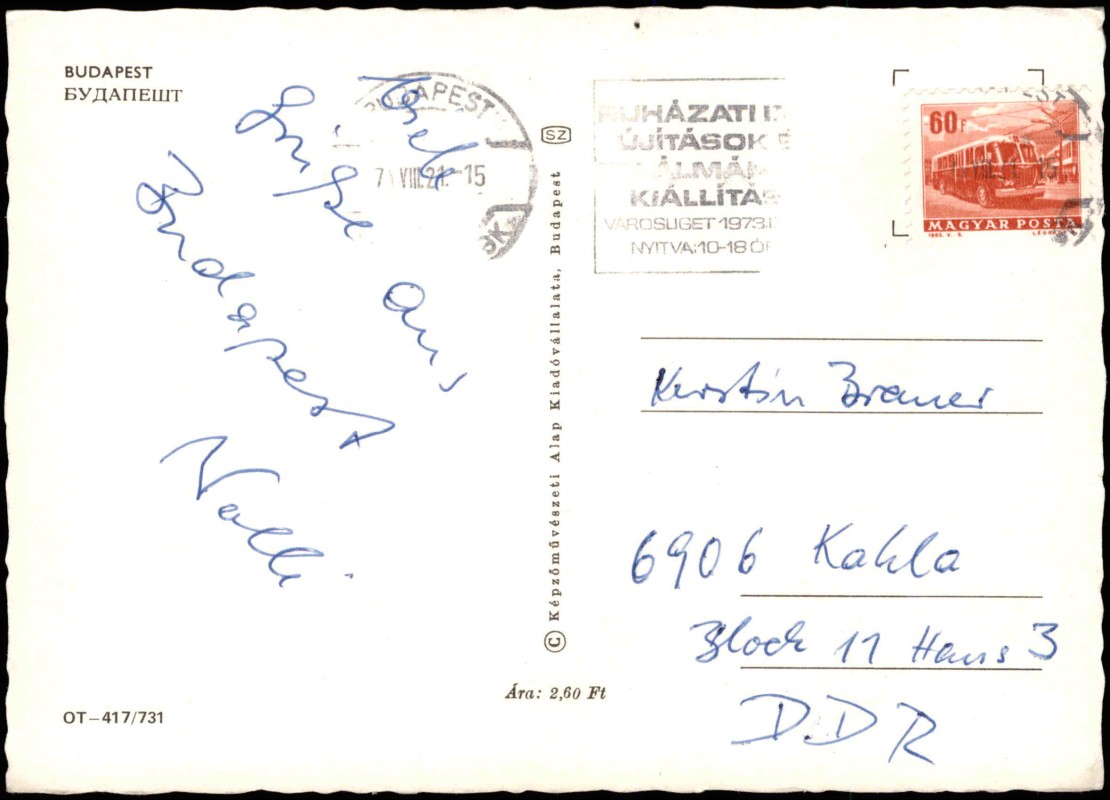 BUDAPEST
БУДАПЕШТ
Viele
Grüße aus
Budapest
Valli
BUDAPEST
VIII.21.-15
RUHÁZATI
ÚJÍTÁSOK
KIÁLLÍTÁS
VÁROSLIGET 1973.
NYITVA: 10-18
60F
MAGYAR POSTA
SZ
© Képzőművészeti Alap Kiadóvállalata, Budapest
Kerstin Bramer
6906 Kahla
Block 11 Haus 3
DDR
Ára: 2,60 Ft
OT-417/731